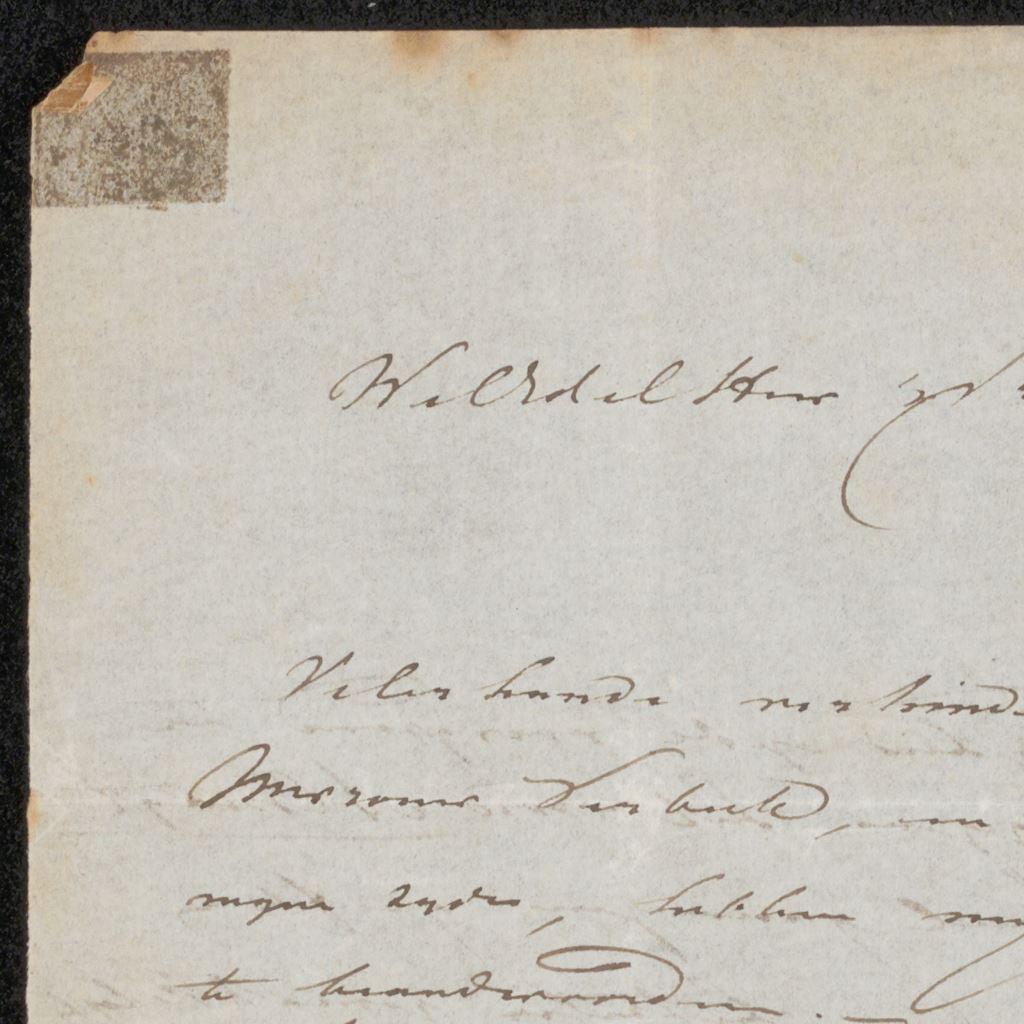 WelEdel Heer
Velerhande verhind
Mevrouw Verbeek, en
mijne zyde, hebben my
te beandwoorden.